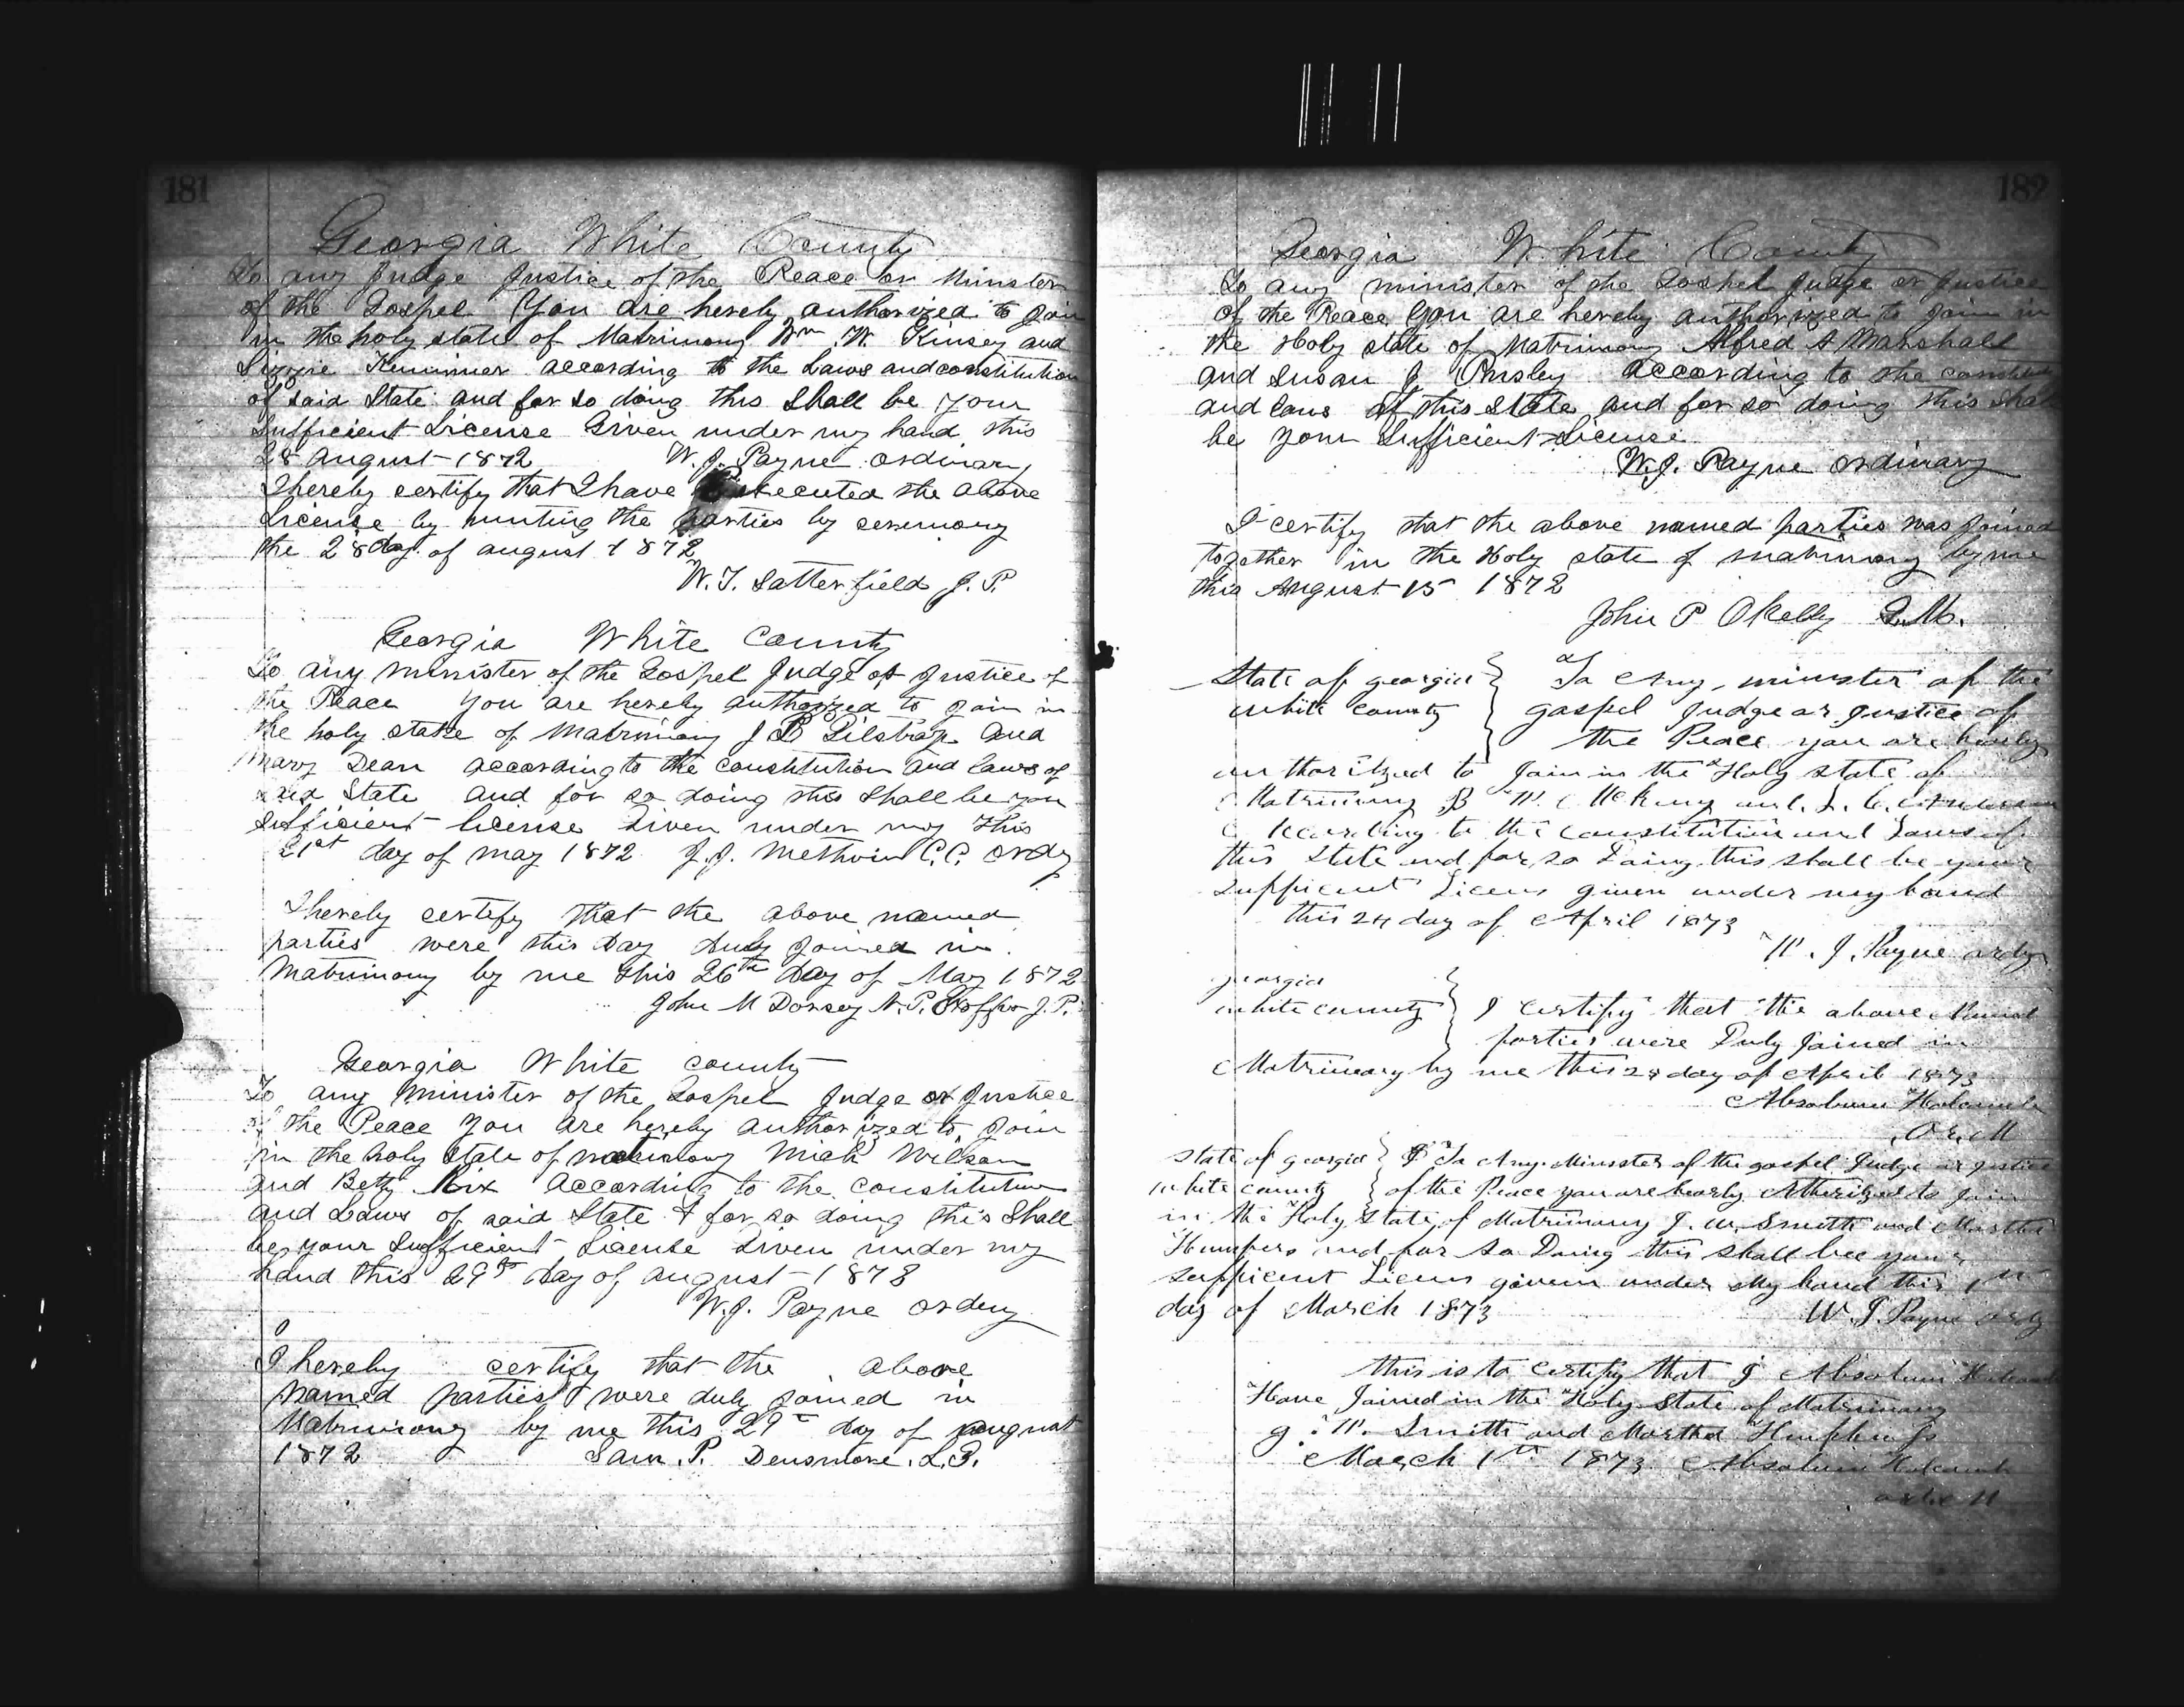 181
Georgia White County
To any Judge Justice of the Peace or Minister
of the Gospel You are hereby authorized to join
in the holy state of Matrimony Wm W. Kinsey and
Lizzie Kenimer according to the Laws and constitution
of said State and for so doing this Shall be your
Sufficient License Given under my hand this
28 August 1872 W. J. Payne Ordinary
I hereby certify that I have executed the above
License by uniting the parties by ceremony
the 28 day of august 1872
W. T. Satterfield J. P.
Georgia White County
To any minister of the Gospel Judge or Justice of
the Peace You are hereby authorized to join in
the holy state of Matrimony J B Gilstrap and
Mary Dean according to the constitution and laws of
said State and for so doing this Shall be you
Sufficient license Given under my This
21st day of may 1872 J. J. Methvin C.C. Ordy
I hereby certify that the above named
parties were this day duly joined in
Matrimony by me this 26th day of May 1872
John M Dorsey N. P. Exoffico J. P.
Georgia White county
To any Minister of the Gospel Judge or Justice
of the Peace You are hereby authorized to join
in the holy state of matrimony Mick Wilson
and Betty Nix according to the constitution
and Laws of said State & for so doing this Shall
be your Sufficient License Given under my
hand this 29th day of august 1878
W. J. Payne Ordny
I hereby certify that the above
named parties were duly joined in
Matrimony by me this 29th day of august
1872 Sam. P. Densmore. L.P.
182
Georgia White County
To any minister of the Gospel Judge or Justice
of the Peace You are hereby authorized to join in
the Holy state of Matrimony Alfred A Marshall
and Susan J Ansley according to the
and laws of this State and for so doing this shal
be your Sufficient License
W. J. Payne Ordinary
I certify that the above named parties was joined
together in the Holy state of matrimony by me
this August 15 1872
John P OKelly G.M.
State of georgia To Any minister of the
white county gospel Judge or Justice of
the Peace you are hearby
authorized to Join in the Holy state of
Matrimony B W. McKiny and L. C.
According to the constitution and Laws of
this State and for so Doing this shall be your
Sufficient Licens given under my hand
this 24 day of April 1873
W. J. Payne ordy
georgia
white county I certify that the above Named
parties were Duly Joined in
Matrimony by me this 28 day of April 1873
Absolum Holcomb
O. E. M
State of georgia To Any Minister of the gospel Judge or Justice
white county of the Peace you are hearby Atherized to Join
in the Holy state of Matrimony J. W. Smith and Martha
and for so Doing this shall bee your
Sufficient Licens givein under My hand this 1st
day of March 1873 W. J. Payne ordy
this is to certify that I Absolum Holcomb
Have Joined in the Holy State of Matrimony
g. W. Smith and Martha
March 1st 1873 Absolum Holcomb